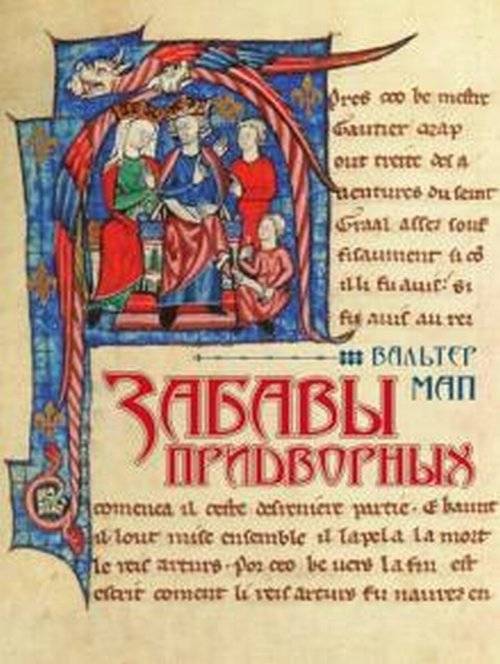 Pres ceo ke mestre
Gautier map
out treite des a
uentures du seint
Graal assez souf
fisaument si cō
illi fu auis: si
fu auis au rei
ВАЛЬТЕР
МАП
ЗАБАВЫ
ПРИДВОРНЫХ
comença il ceste desreniere partie. E kaunt
il lout mise ensemble il lapela la mort
le reis arturs. Por ceo ke uers la fin est
escrit coment li reis arturs fu naurez en